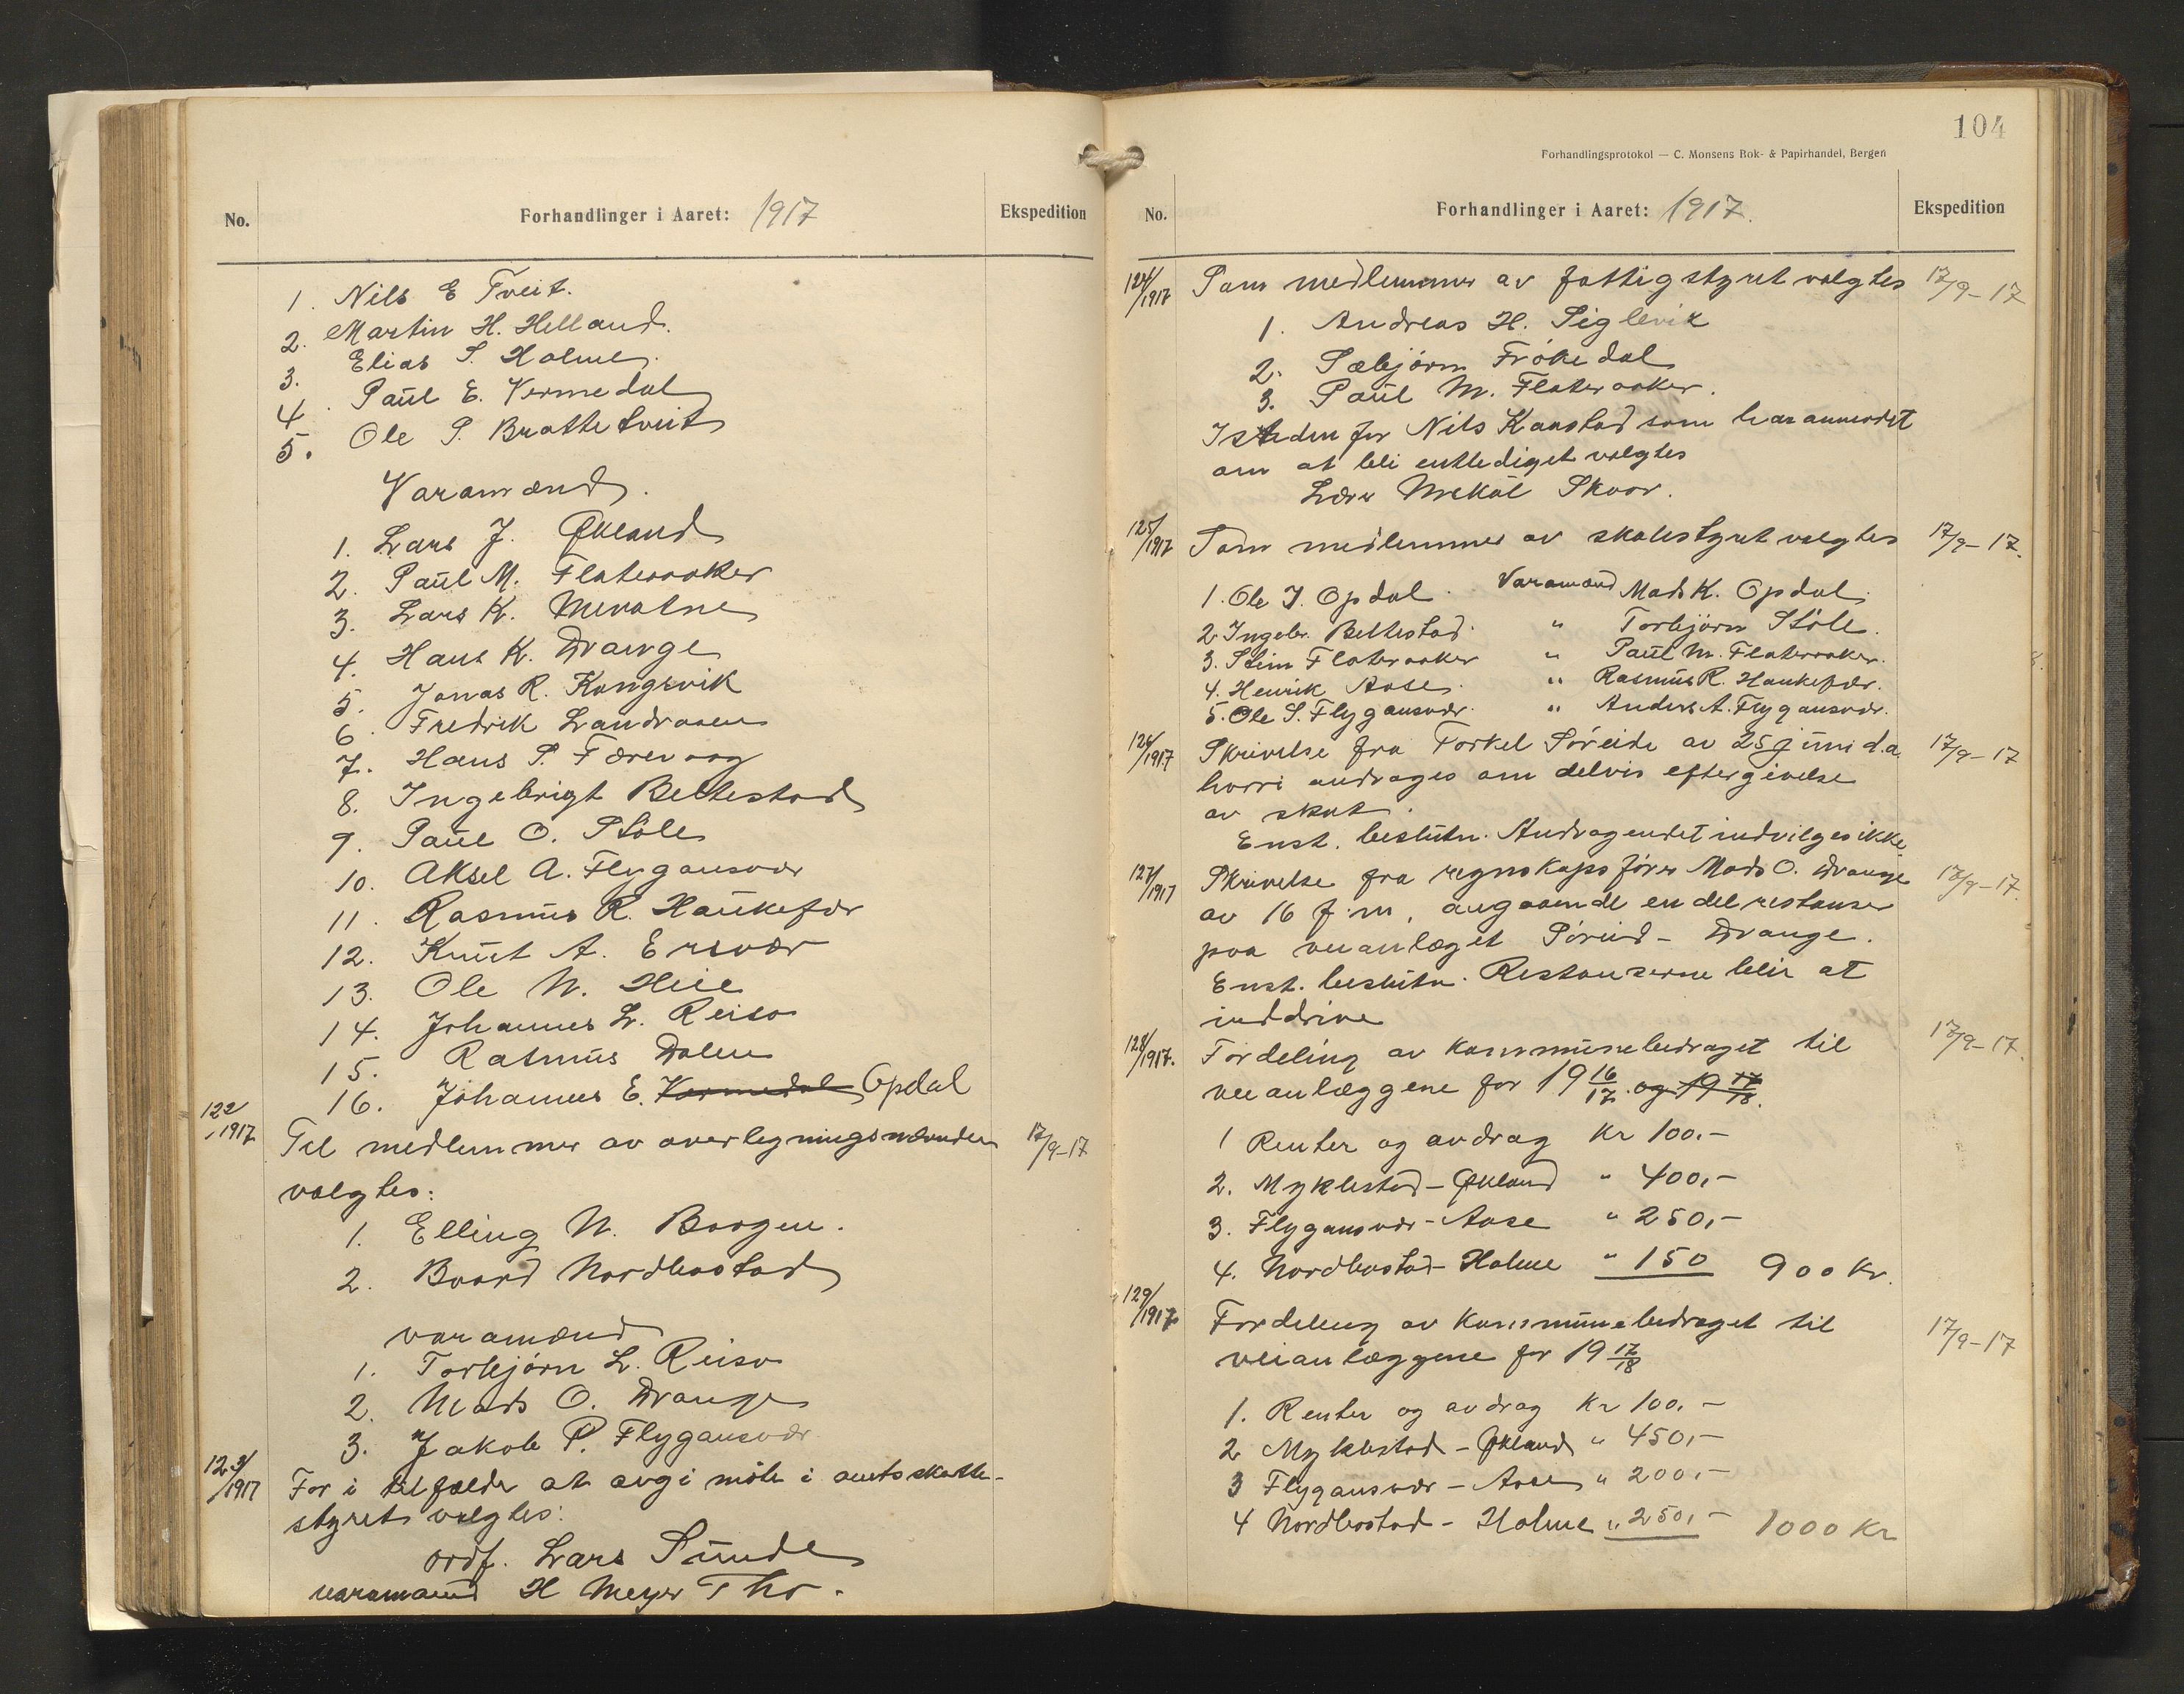 No. Forhandlinger i Aaret: 1917 Ekspedition
1. Nils E Tveit.
2. Martin H. Helland.
3. Elias S. Holme.
4. Paul E. Vermedal
5. Ole S. Brattetveit
Varamænd.
1. Lars J. Økland
2. Paul M. Flateraaker
3. Lars K. Mevatne
4. Hans K. Drange
5. Jonas R. Kongsvik
6. Fredrik Landraaen
7. Hans S. Færevaag
8. Ingebrigt Beltestad
9. Paul O. Støle
10. Aksel A. Flygansvær
11. Rasmus R. Haukefær
12. Knut A. Ersvær
13. Ole N. Heie
14. Johannes L. Reiso
15. Rasmus Dalen
16. Johannes E. Vermedal Opdal
122/1917 Til medlemmer av overlegningsnævnden 17/9-17
valgtes:
1. Elling N. Baagen.
2. Baard Nordbøstad
varamænd
1. Torbjørn L. Reiso
2. Mads O. Drange
3. Jakob P. Flygansvær
123/1917 For i tilfælde at avgi møte i amtsskatte-
styret valgtes:
ordf. Lars Sunde
varamand H Meyer Tho.
104
Forhandlingsprotokol — C. Monsens Bok- & Papirhandel, Bergen
No. Forhandlinger i Aaret: 1917. Ekspedition
124/1917 Som medlemmer av fattigstyret valgtes 17/9-17
1. Andreas H. Siglevik
2. Sæbjørn Frøkedal
3. Paul M. Flateraaker.
Isteden for Nils Kanstad som har anmodet
om at bli entlediget valgtes
Lærer Mekal Skaar.
125/1917 Som medlemmer av skolestyret valgtes 17/9-17.
1. Ole J. Opdal. Varamand Mads K. Opdal.
2. Ingebr. Beltestad. " Torbjørn Støle.
3. Stein Flateraaker " Paul M. Flateraaker.
4. Henrik Aase. " Rasmus R. Haukefær.
5. Ole S. Flygansvær. " Anders A. Flygansvær.
126/1917 Skrivelse fra Torkel Søreide av 25 juni d.a. 17/9-17
hvori andrages om delvis eftergivelse
av skat.
Enst. beslutn. Andragendet indvilges ikke
127/1917 Skrivelse fra regnskapsfører Mads O. Drange 17/9-17.
av 16 f.m. angaaende en del restanser
paa veianlæget Søreid - Drange.
Enst. beslutn. Restanserne blir at
inddrive
128/1917. Fordeling av kommunebidraget til 17/9-17.
veianlæggene for 19 16/17 og 19 17/18.
1 Renter og avdrag Kr 100.-
2. Myklestad - Økland " 400,-
3. Flygansvær - Aase " 250,-
4. Nordbøstad - Holme " 150 900 Kr.
129/1917 Fordeling av Kommunebidraget til 17/9-17
veianlæggene for 19 17/18
1. Renter og avdrag Kr 100.-
2 Myklestad - Økland " 450,-
3 Flygansvær - Aase " 200,-
4 Nordbøstad - Holme " 250,- 1000 Kr